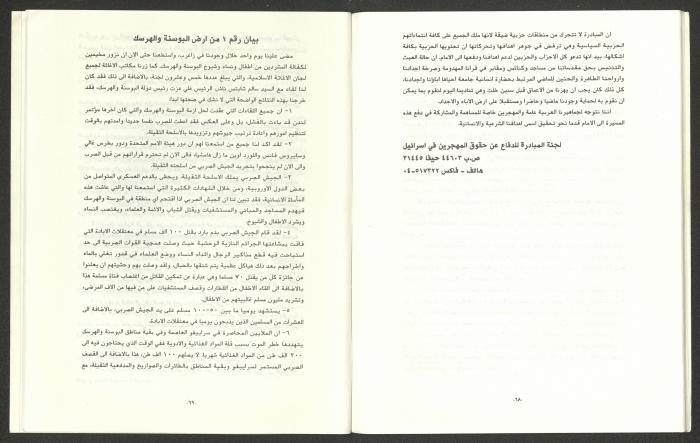 ان المبادرة لا تتحرك من منطلقات حزبية ضيقة لانها ملك الجميع على كافة انتماءاتهم
الحزبية السياسية وهي ترفض في جوهر اهدافها وتحركاتها ان تحتويها الحزبية بكافة
اشكالها، بيد انها تدعو كل الاحزاب والحزبين لدعم اهدافها ودفعها الى الامام. ان حالة العبث
والتدنيس بحق مقدساتنا من مساجد وكنائس ومقابر في قرانا المهدومة وصرخة اجدادنا
وارواحنا الطاهرة والحنين للماضي المرتبط بحضارة انسانية جامعة احياها اباؤنا واجدادنا،
كل ذلك كان يجب ان يهزنا من الاعماق قبل سنين خلت وهي تنادينا اليوم لنقوم بما يمكن
ان نقوم به لحماية وجودنا ماضيا وحاضرا ومستقبلا على ارض الاباء والاجداد.
اننا نتوجه لجماهيرنا العربية عامة والمهجرين خاصة للمساهمة والمشاركة في دفع هذه
المسيرة الى الامام قدما نحو تحقيق اسمى اهدافنا الشرعية والانسانية.
لجنة المبادرة للدفاع عن حقوق المهجرين في اسرائيل
ص.ب ٤٤٦٠٣ حيفا ٣١٤٤٥
هاتف - فاكس ٥١٧٣٢٢-٠٤
-٦٨-
بيان رقم ١ من ارض البوسنة والهرسك
مضى علينا يوم واحد خلال وجودنا في زاغرب، واستطعنا حتى الان ان نزور مخيمين
لكفالة المشردين من اطفال ونساء وشيوخ البوسنة والهرسك. كما زرنا مكاتب الاغاثة لجميع
لجان الاغاثة الاسلامية، والتي يبلغ عددها خمس وعشرون لجنة، بالاضافة الى ذلك فقد كان
لنا لقاء مع السيد سالم شابتش نائب الرئيس علي عزت رئيس دولة البوسنة والهرسك، فقد
خرجنا بهذه النتائج الواضحة التي لا نشك في صحتها ابدا:
١- ان جميع اللقاءات التي عقدت لحل ازمة البوسنة والهرسك والتي كان اخرها مؤتمر
لندن قد باءت بالفشل، بل وعلى العكس فقد اعطت للصرب نفسا جديدا وامدتهم بالوقت
لتنظيم امورهم واعادة ترتيب جيوشهم وتزويدها بالاسلحة الثقيلة.
٢- لقد اكد لنا جميع من استمعنا لهم ان دور هيئة الامم المتحدة ودور بطرس غالي
وسايروس فانس واللورد اوين ما زال هامشيا، فالى الان لم تحترم قراراتهم من قبل الصرب
والى الان لم ينجحوا بتجريد الجيش الصربي من اسلحته الثقيلة.
٣- الجيش الصربي يملك الاسلحة الثقيلة. ويحظى بالدعم العسكري المتواصل من
بعض الدول الاوروبية، ومن خلال الشهادات الكثيرة التي استمعنا لها والتي عاشت هذه
المأساة الانسانية، فقد تبين لنا ان الجيش الصربي اذا اقتحم اي منطقة في البوسنة والهرسك
فيهدم المساجد والمباني والمستشفيات ويقتل الشباب والائمة والعلماء، ويغتصب النساء
ويشرد الاطفال والشيوخ.
٤- لقد قام الجيش الصربي بدم بارد بقتل ١٠٠ الف مسلم في معتقلات الابادة التي
فاقت ببشاعتها الجرائم النازية الوحشية حيث وصلت همجية القوات الصربية الى حد
استباحت فيه قطع مذاكير الرجال واثداء النساء ووضع العلماء في قدور تغلي بالماء
واخراجهم بعد ذلك هياكل عظمية يتم شنقها بالحبال، ولقد وصلت بهم وحشيتهم ان يعلنوا
عن جائزة كل من يقتل ٧٠ مسلما وهي عبارة عن تمكين القاتل من اغتصاب فتاة مسلمة هذا
بالاضافة الى القاء الاطفال من القطارات وقصف المستشفيات على من فيها من الاف المرضى،
وتشريد مليون مسلم غالبيتهم من الاطفال.
٥- يستشهد يوميا ما بين ٥٠-١٠٠ مسلم على يد الجيش الصربي، بالاضافة الى
العشرات من المسلمين الذين يذبحون يوميا في معتقلات الابادة.
٦- ان الملايين المحاصرة في سراييفو العاصمة وفي بقية مناطق البوسنة والهرسك
يتهددها خطر الموت بسبب قلة المواد الغذائية والادوية ففي الوقت الذي يحتاجون فيه الى
٢٠٠ الف طن من المواد الغذائية شهريا. لا يصلهم ١٠٠ الف طن، هذا بالاضافة الى القصف
الصربي المستمر لسراييفو وبقية المناطق بالطائرات والصواريخ والمدفعية الثقيلة، مع
-٦٦-